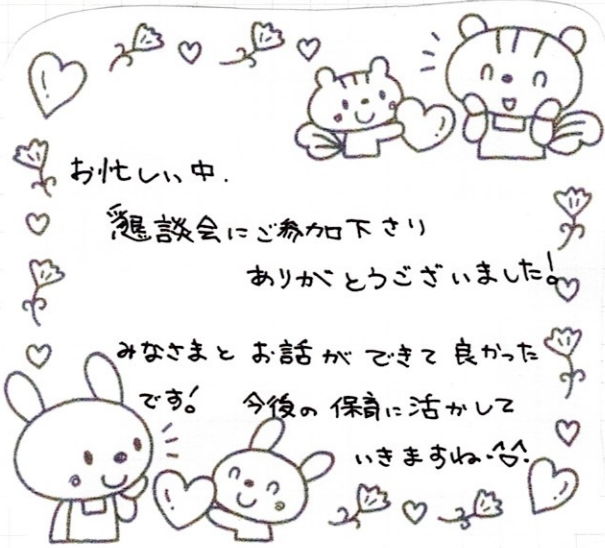 お忙しい中、
懇談会にご参加下さり
ありがとうございました!
みなさまと お話が できて 良かった
です! 今後の 保育に活かして
いきますね^^